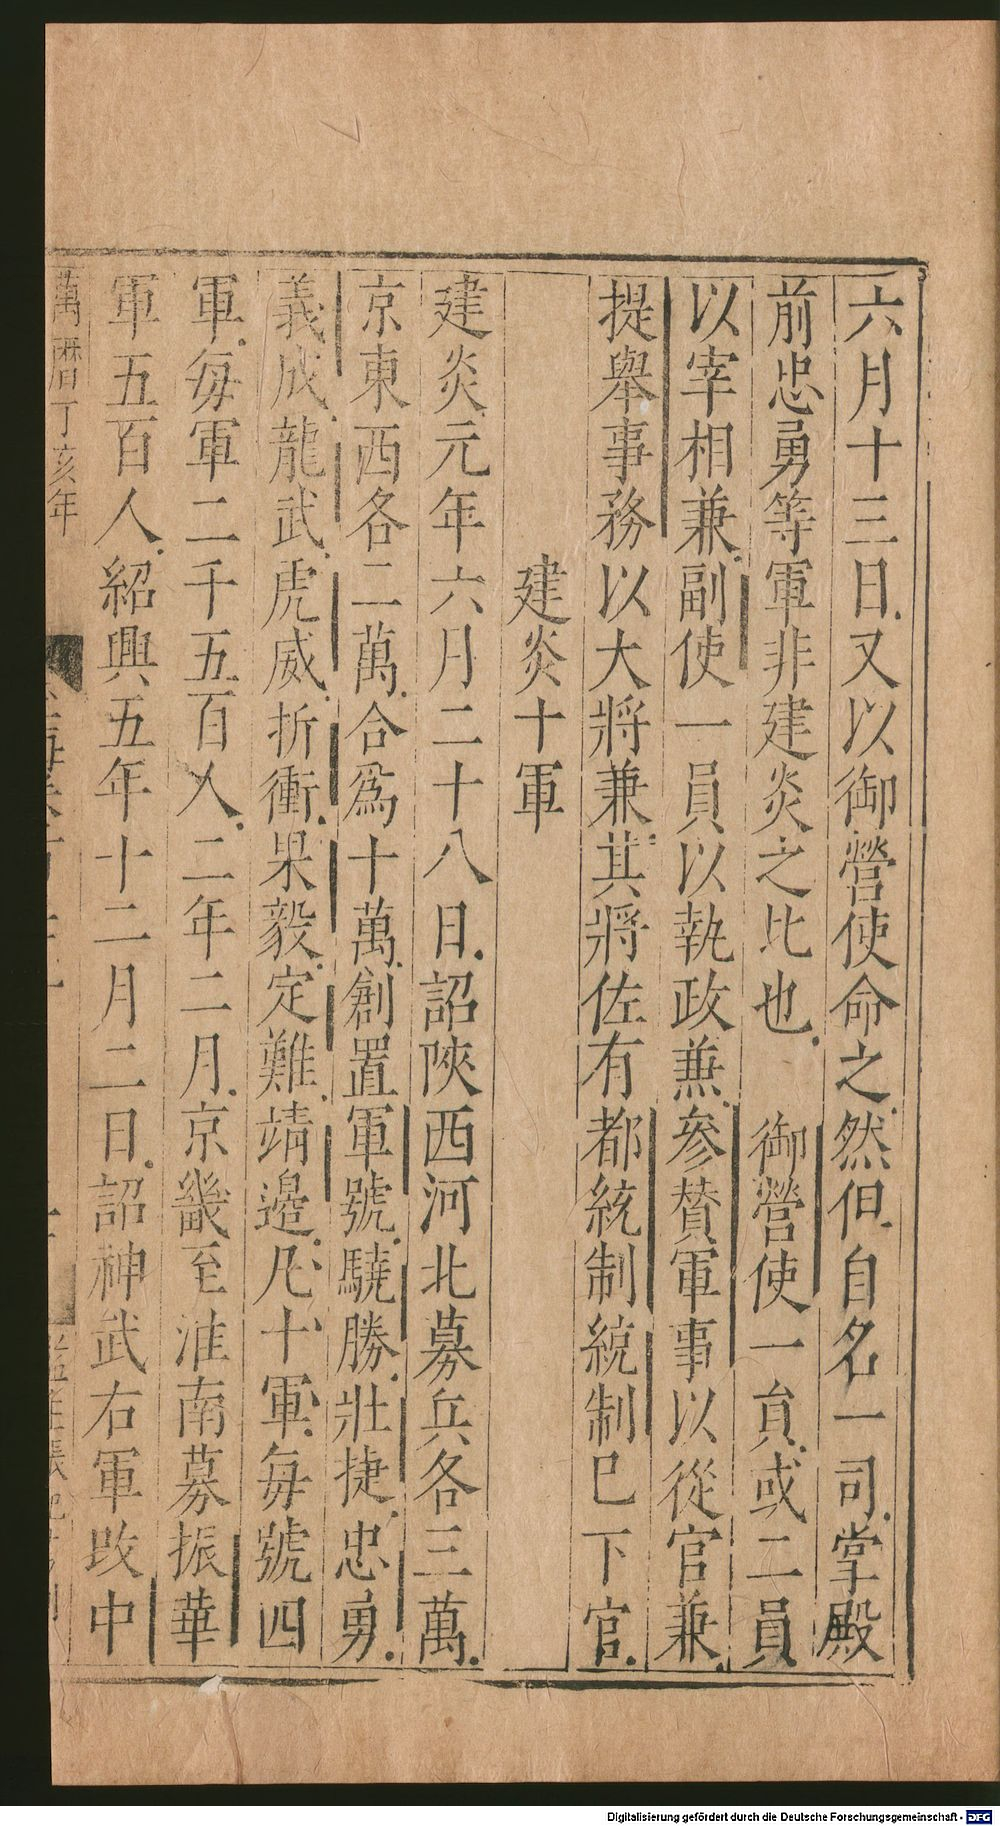 六月十三日又以御營使命之然但自名一司掌殿
前忠勇等軍非建炎之比也　御營使一員或二員
以宰相兼副使一員以執政兼參賛軍事以從官兼
提舉事務以大將兼其將佐有都統制統制已下官
建炎十軍
建炎元年六月二十八日詔陝西河北募兵各三萬
京東西各二萬合爲十萬創置軍號驍勝壯捷忠勇
義成龍武虎威折衝果毅定難靖邊凡十軍每號四
軍每軍二千五百人二年二月京畿至淮南募振華
軍五百人紹興五年十二月二日詔神武右軍改中
萬曆丁亥年
Digitalisierung gefördert durch die Deutsche Forschungsgemeinschaft - DFG